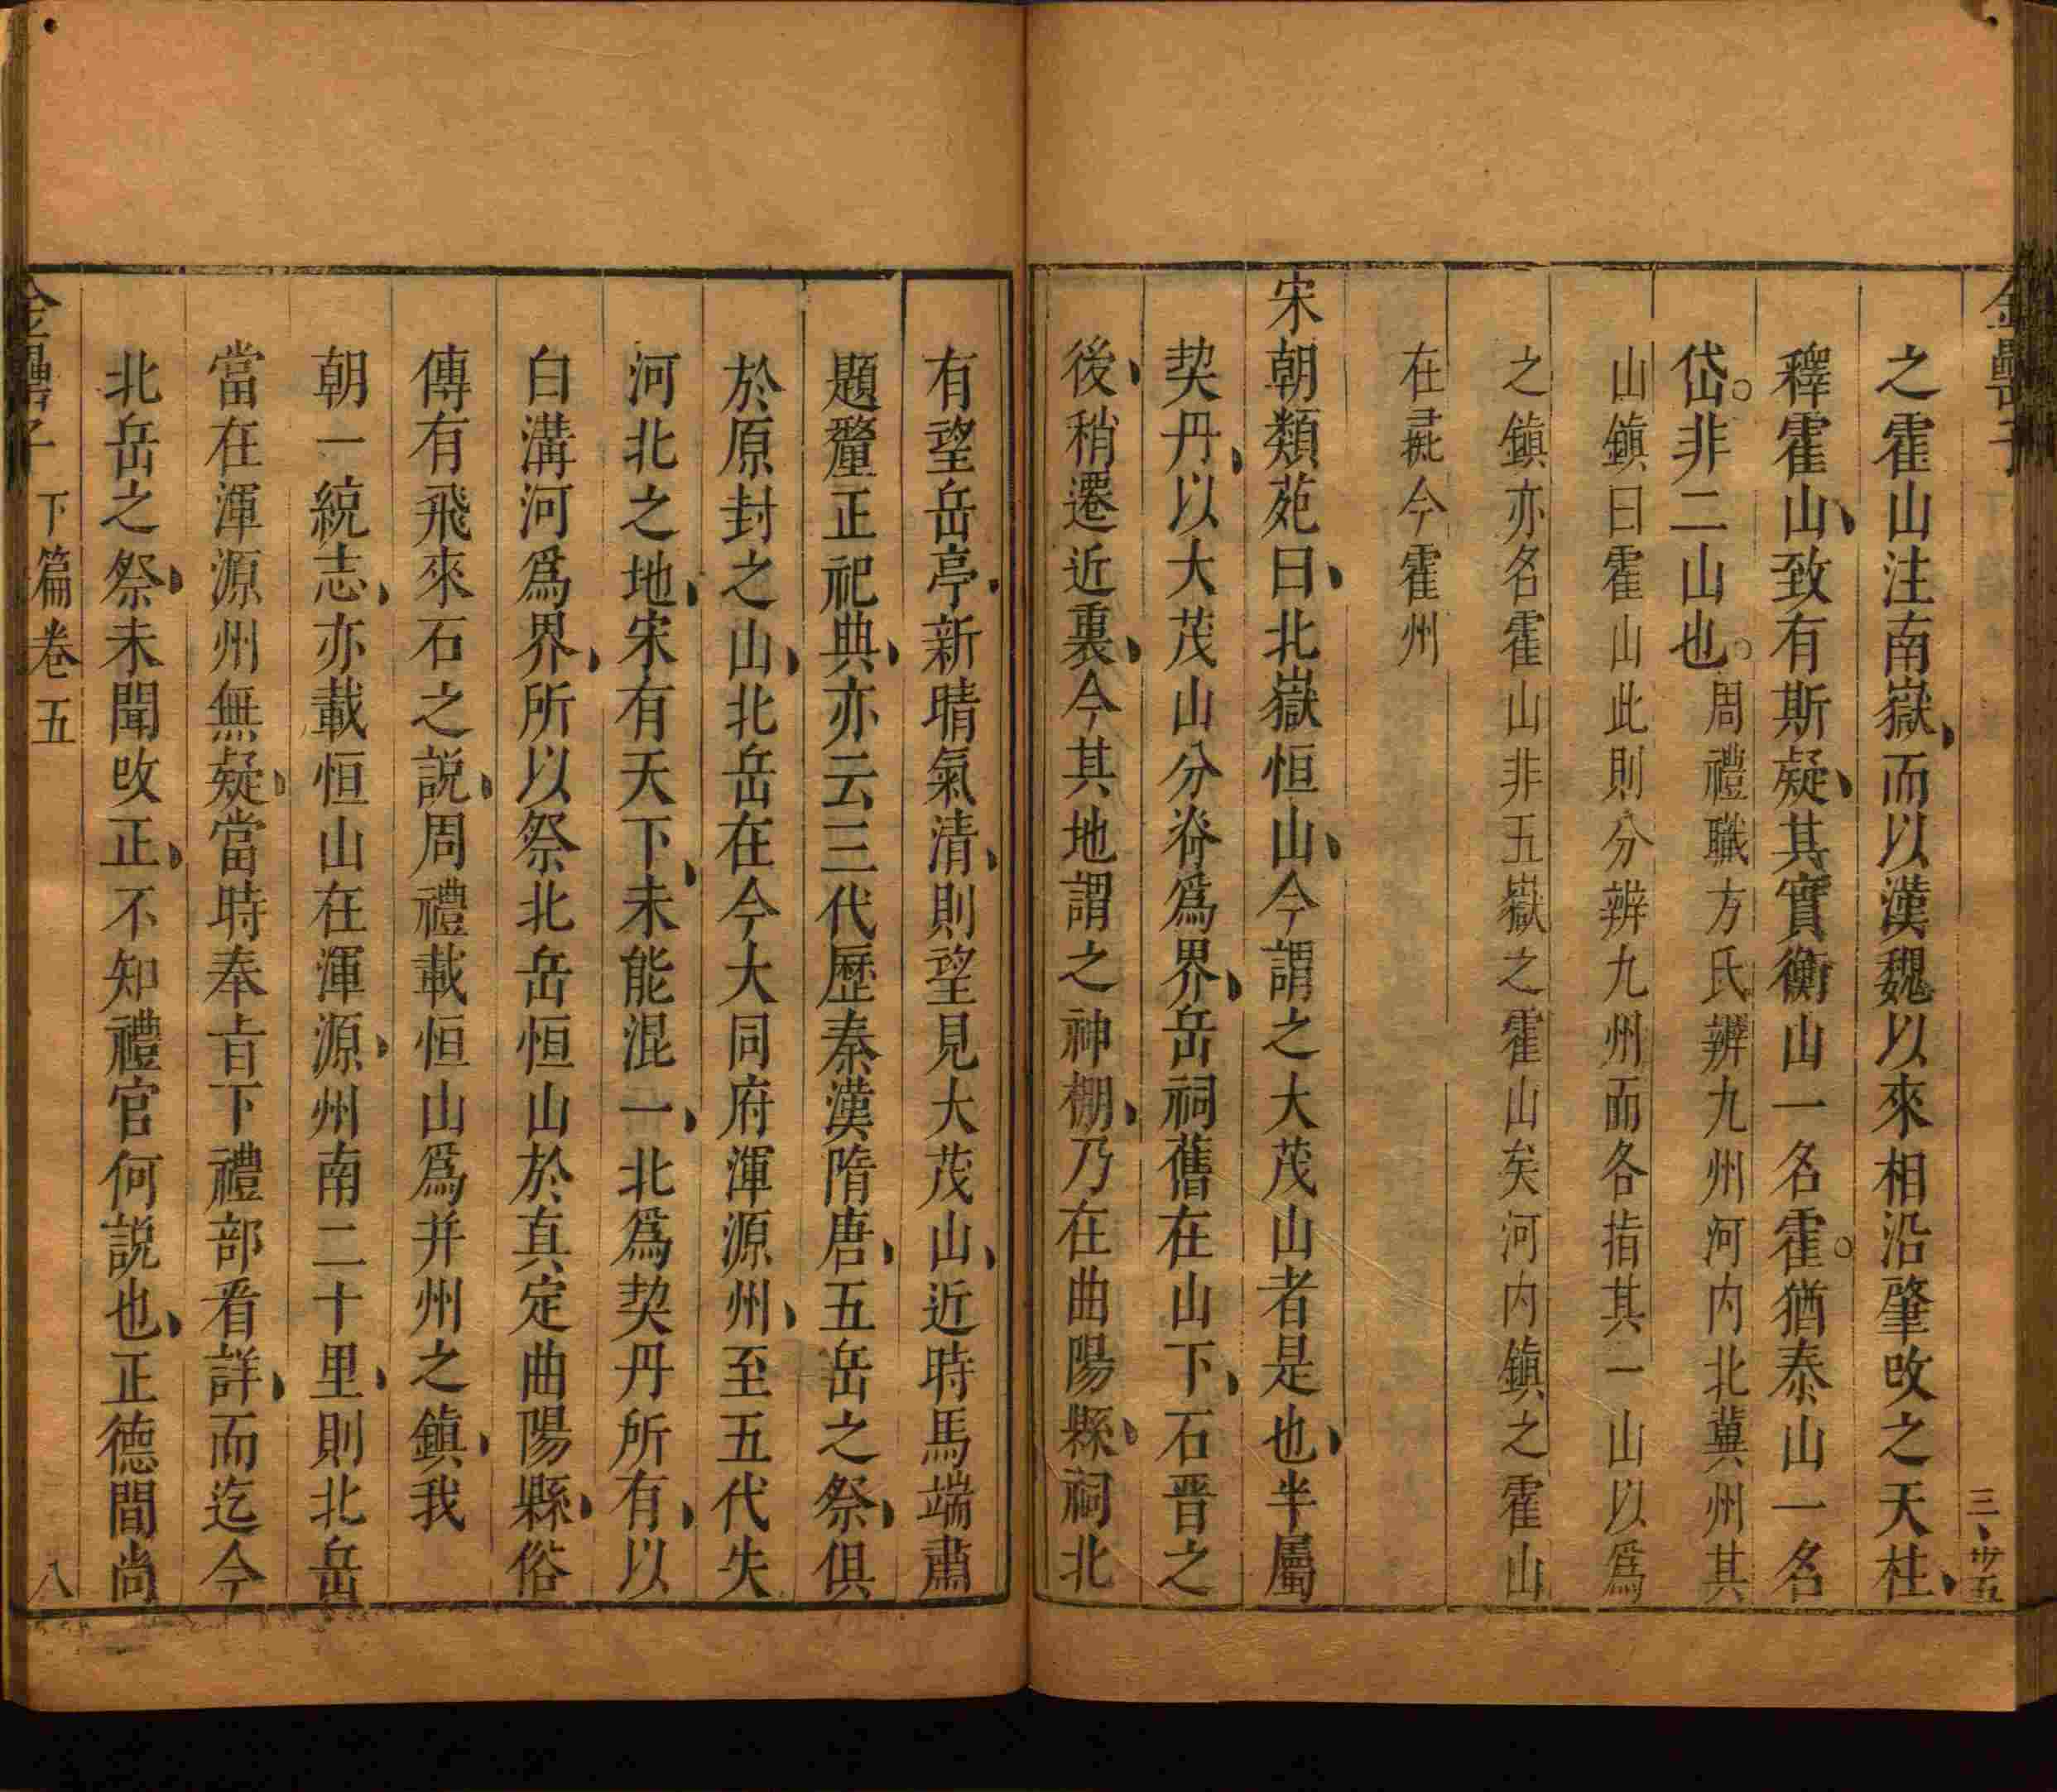 之霍山注南嶽而以漢魏以來相沿肇改之天柱
釋霍山致有斯疑其實衡山一名霍猶泰山一名
岱非二山也周禮職方氏辨九州河内北冀州其
山鎮曰霍山此則分辨九州而各指其一山以爲
之鎮亦名霍山非五嶽之霍山矣河内鎮之霍山
在彘今霍州
宋朝類苑曰北嶽恒山今謂之大茂山者是也半屬
契丹以大茂山分脊爲界岳祠舊在山下石晋之
後稍遷近裏今其地謂之神棚乃在曲陽縣祠北
有望岳亭新晴氣清則望見大茂山近時馬端肅
題釐正祀典亦云三代歷秦漢隋唐五岳之祭俱
於原封之山北岳在今大同府渾源州至五代失
河北之地宋有天下未能混一北爲契丹所有以
白溝河爲界所以祭北岳恒山於真定曲陽縣俗
傳有飛來石之説周禮載恒山爲并州之鎮我
朝一統志亦載恒山在渾源州南二十里則北岳
當在渾源州無疑當時奉旨下禮部看詳而迄今
北岳之祭未聞改正不知禮官何説也正德間尚
金罍子
下篇卷五
八